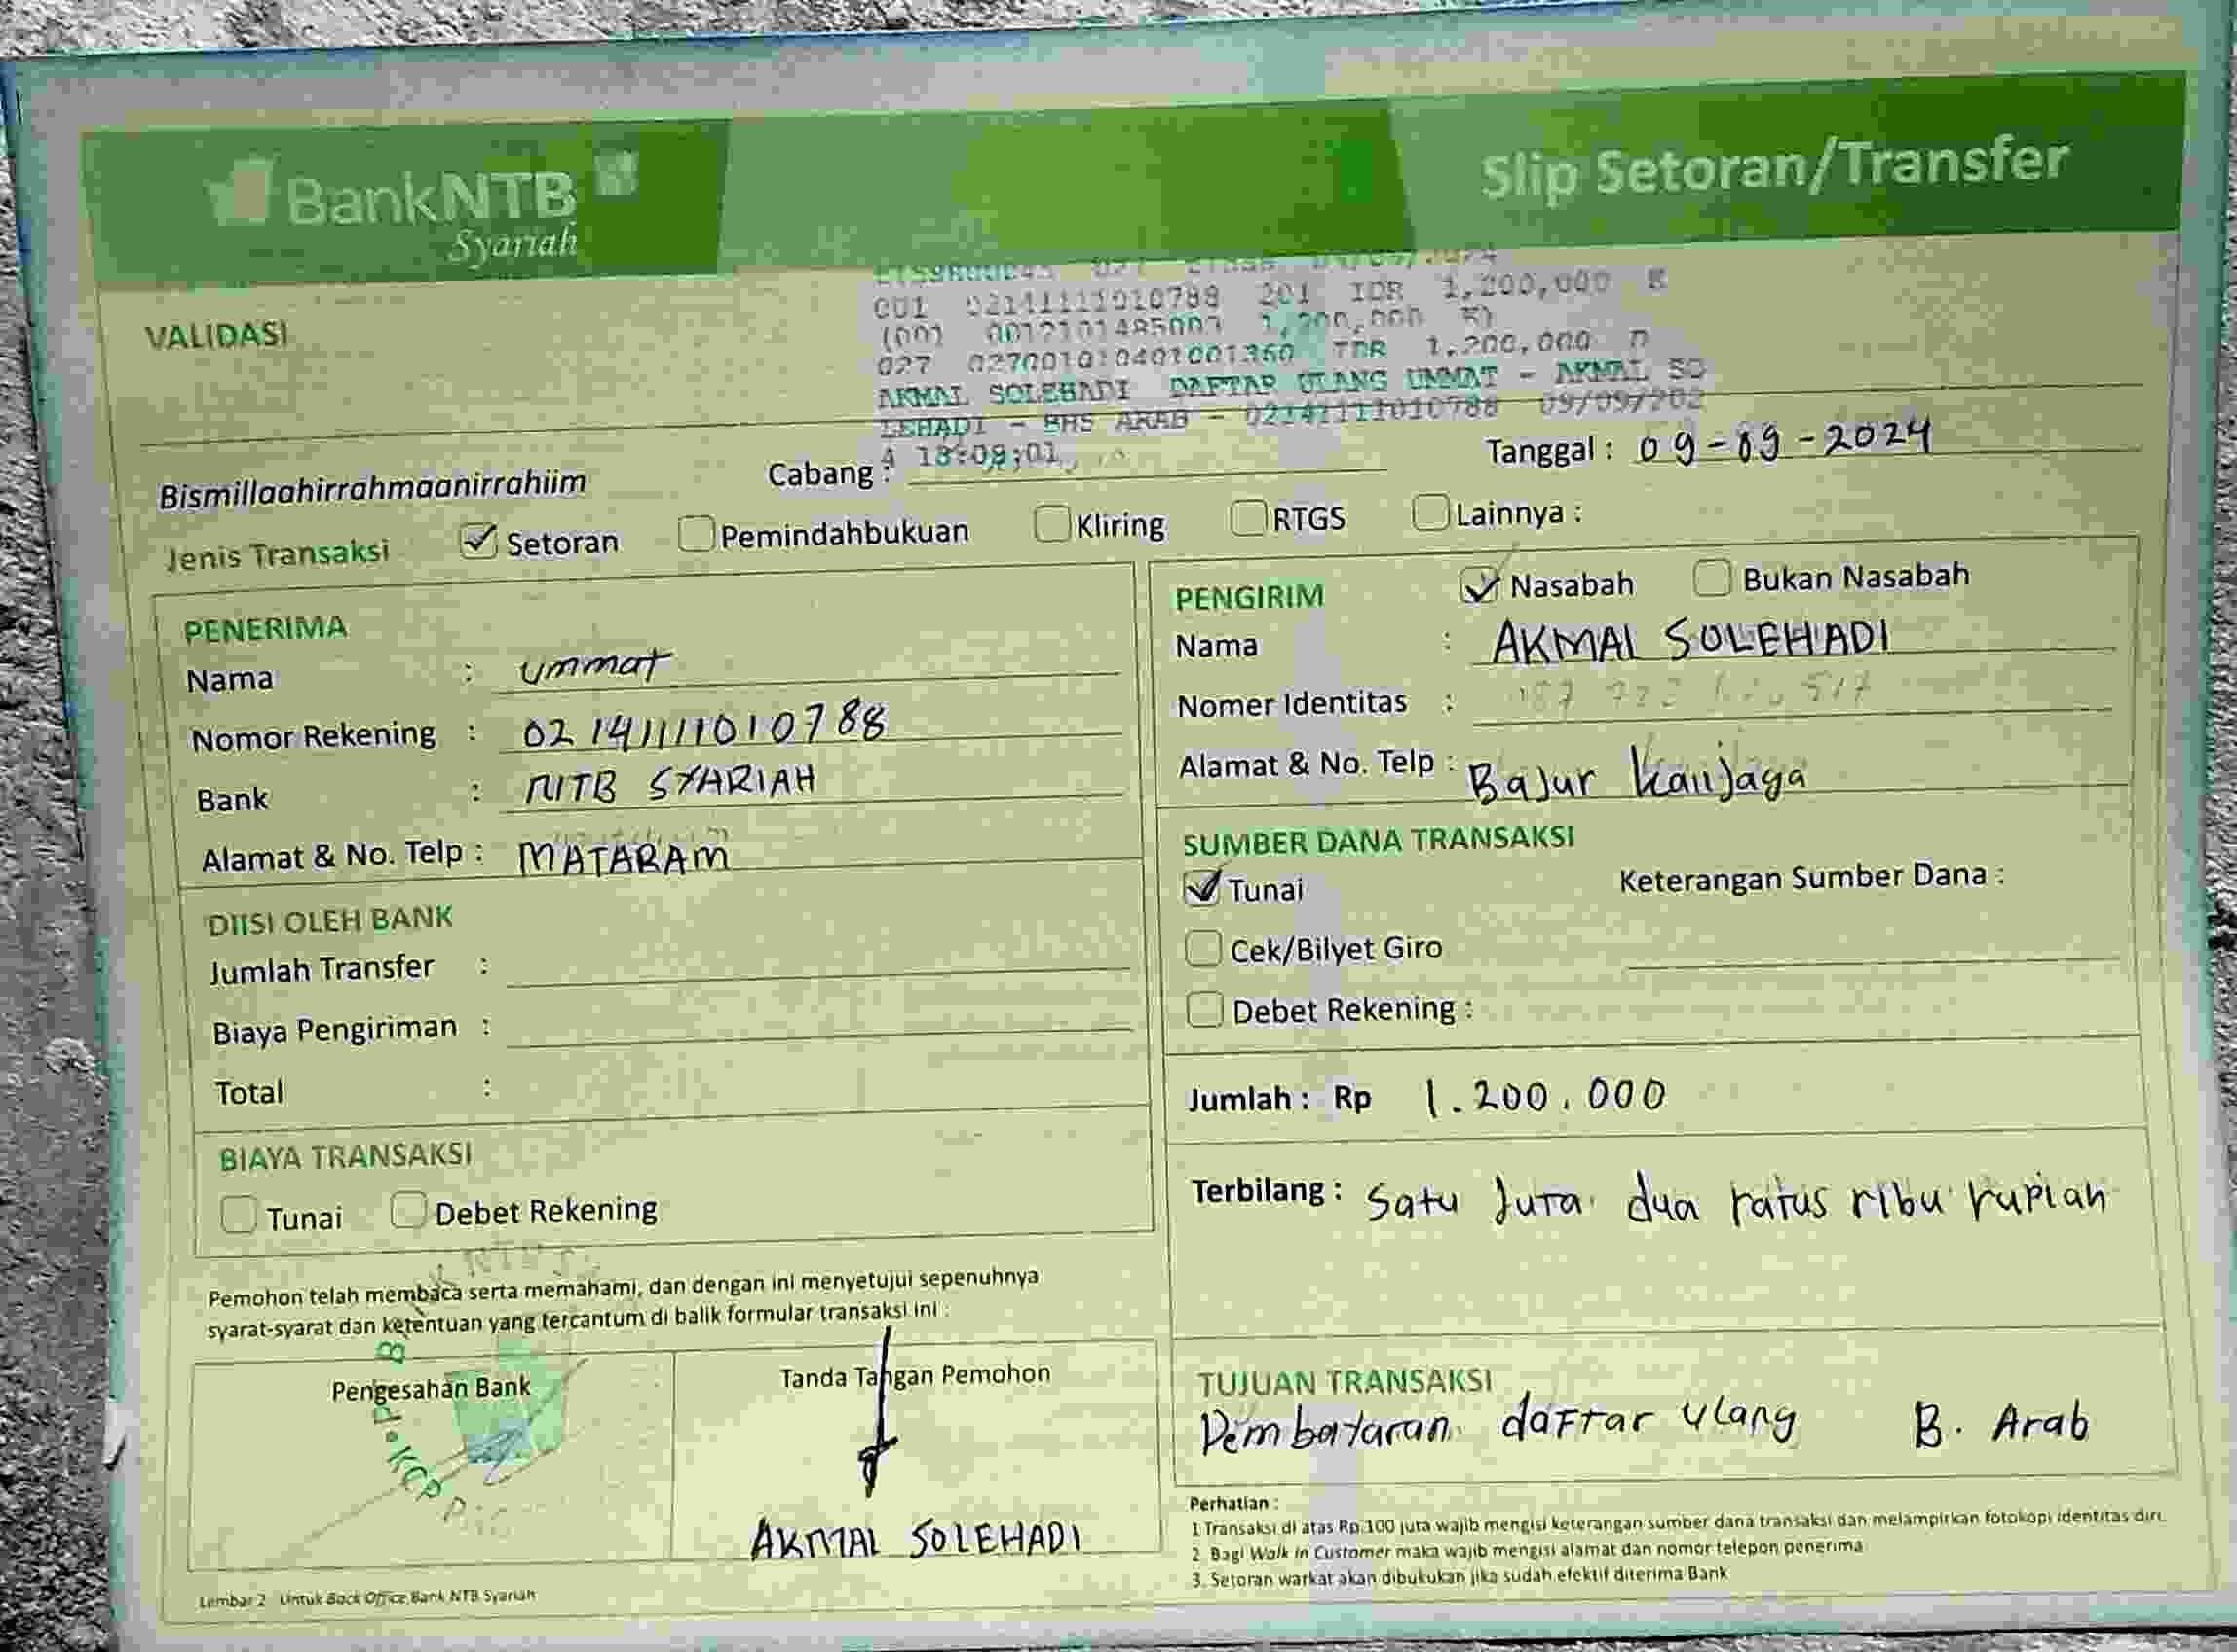 BankNTB
Syariah
Slip Setoran/Transfer
VALIDASI
001 02141111010788 201 IDR 1,200,000 K
(001 0012101485003 1,200,000 K)
027 027001010401001360 IDR 1,200,000 D
AKMAL SOLEHADI DAFTAR ULANG UMMAT - AKMAL SO
LEHADI - BHS ARAB - 02141111010788 09/09/202
4 13:09:01
Bismillaahirrahmaanirrahiim
Cabang :
Tanggal : 09-09-2024
Jenis Transaksi Setoran Pemindahbukuan Kliring RTGS Lainnya :
PENERIMA
Nama : ummat
Nomor Rekening : 02 14111101 0788
Bank : NTB SYARIAH
Alamat & No. Telp : MATARAM
DIISI OLEH BANK
Jumlah Transfer :
Biaya Pengiriman :
Total :
BIAYA TRANSAKSI
Tunai Debet Rekening
Pemohon telah membaca serta memahami, dan dengan ini menyetujui sepenuhnya
syarat-syarat dan ketentuan yang tercantum di balik formular transaksi ini :
Pengesahan Bank
Tanda Tangan Pemohon
AKMAL SOLEHADI
Lembar 2 Untuk Back Office Bank NTB Syariah
PENGIRIM Nasabah Bukan Nasabah
Nama : AKMAL SOLEHADI
Nomer Identitas :
Alamat & No. Telp : Bajur
SUMBER DANA TRANSAKSI
Tunai Keterangan Sumber Dana :
Cek/Bilyet Giro
Debet Rekening :
Jumlah : Rp 1.200.000
Terbilang : Satu Juta dua ratus ribu rupiah
TUJUAN TRANSAKSI
Pembayaran daftar ulang B. Arab
Perhatian :
1 Transaksi di atas Rp.100 juta wajib mengisi keterangan sumber dana transaksi dan melampirkan fotokopi identitas diri.
2. Bagi Walk in Customer maka wajib mengisi alamat dan nomor telepon penerima
3. Setoran warkat akan dibukukan jika sudah efektif diterima Bank